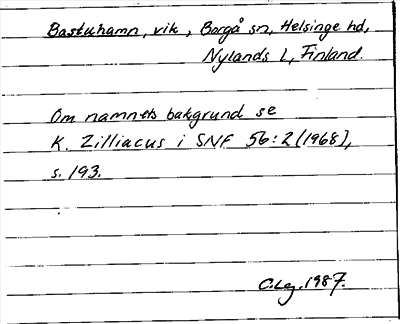 Bastuhamn, vik, Borgå sn, Helsinge hd,
Nylands l, Finland.
Om namnets bakgrund se
K. Zilliacus i SNF 56:2 (1968),
s. 193.
C.Lg. 1987.